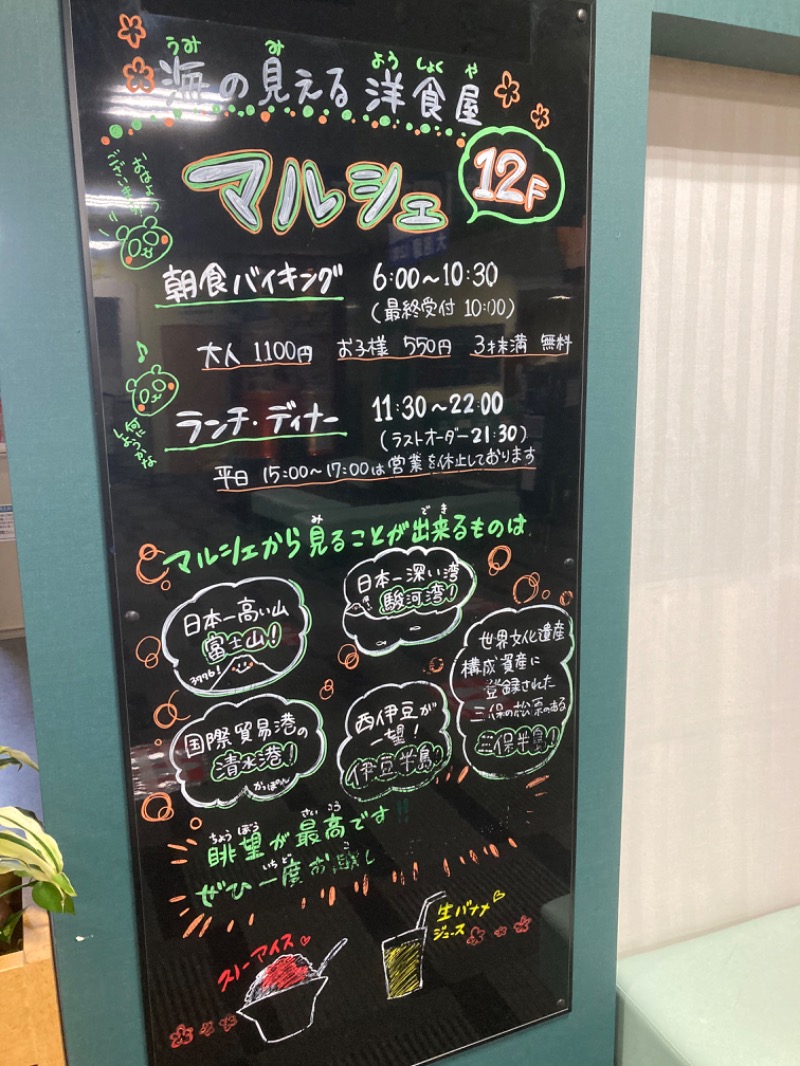 うみ み よう しょく や
海の見える洋食屋
マルシェ
12F
おはよう
ございます
朝食バイキング 6:00〜10:30
(最終受付 10:00)
大人 1100円 お子様 550円 3才未満 無料
♪
何に
しようかな
ランチ・ディナー 11:30〜22:00
(ラストオーダー21:30)
平日 15:00〜17:00は営業を休止しております
み でき
マルシェから見ることが出来るものは
日本一高い山
富士山!
3776!
日本一深い湾
駿河湾!
世界文化遺産
構成資産に
登録された
三保の松原のある
三保半島!
国際貿易港の
清水港!
西伊豆が
一望!
伊豆半島!
ちょうぼう さいこう
眺望が最高です
いちど
ぜひ一度お越し
スノーアイス♡
生バナナ♡
ジュース